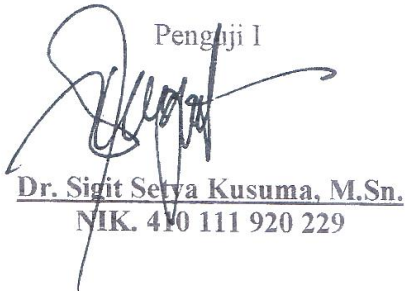 Penguji I
Dr. Sigit Setya Kusuma, M.Sn.
NIK. 410 111 920 229